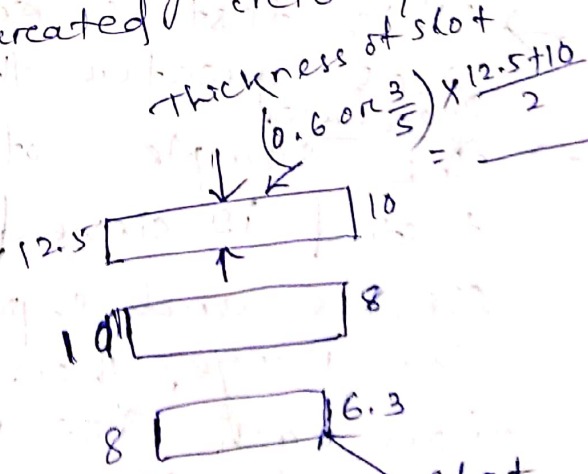 created
Thickness of slot
(0.6 or 3/5) × 12.5+10/2
= —
12.5 10
10 8
8 6.3